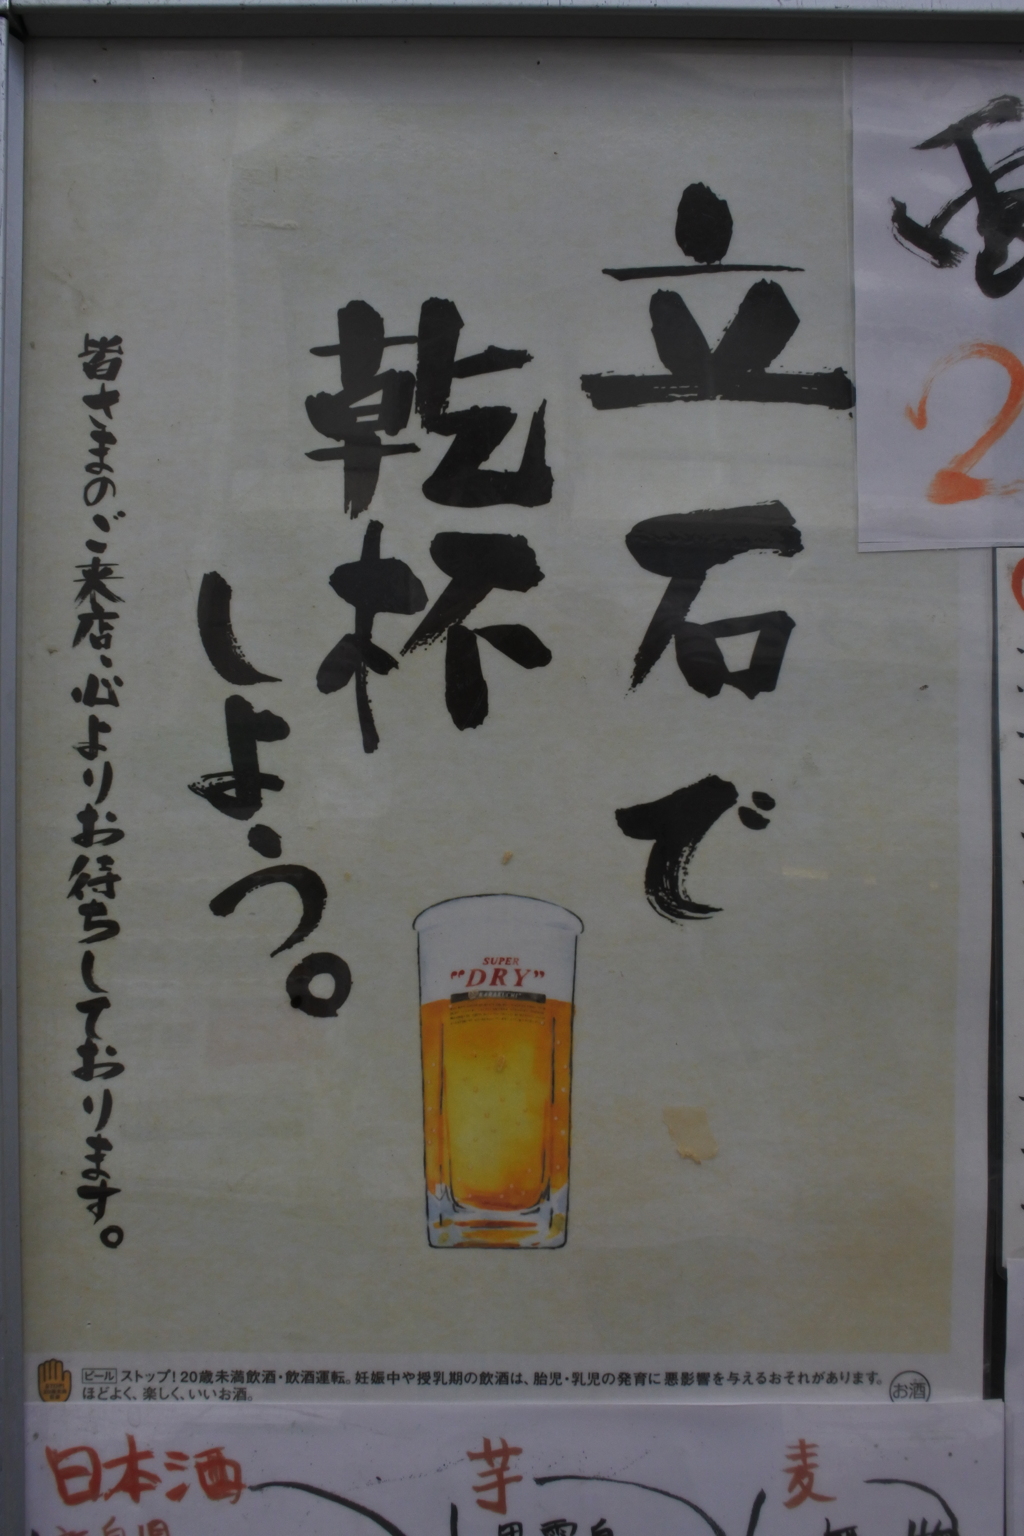 立石で
乾杯
しよう。
皆さまのご来店、心よりお待ちしております。
SUPER
"DRY"
ビール ストップ!20歳未満飲酒・飲酒運転。妊娠中や授乳期の飲酒は、胎児・乳児の発育に悪影響を与えるおそれがあります。
ほどよく、楽しく、いいお酒。
お酒
2
日本酒
芋
麦